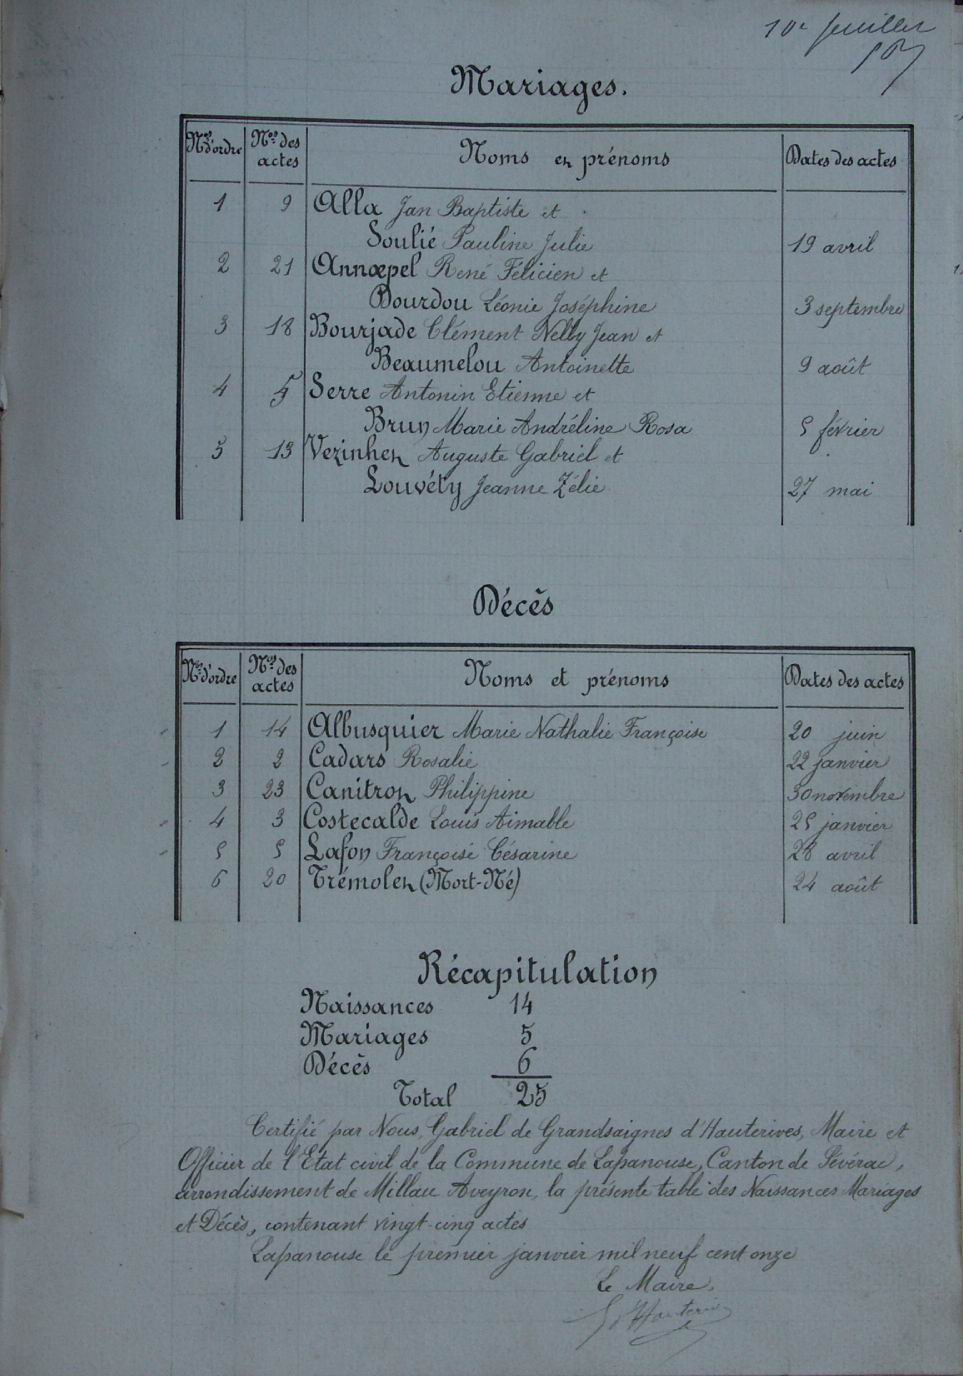 10e feuillet
Mariages.
Nos d'ordre Nos des actes Noms et prénoms Dates des actes
1 9 Alla Jan Baptiste et
Soulié Pauline Julie 19 avril
2 21 Annœpel René Félicien et
Bourdou Léonie Joséphine 3 septembre
3 18 Bourjade Clément Nelly Jean et
Beaumelou Antoinette 9 août
4 5 Serre Antonin Etienne et
Brun Marie Andréline Rosa 5 février
5 13 Vezinhet Auguste Gabriel et
Louvéty Jeanne Zélie 27 mai
Décès
Nos d'ordre Nos des actes Noms et prénoms Dates des actes
1 14 Albusquier Marie Nathalie Françoise 20 juin
2 2 Cadars Rosalie 22 janvier
3 23 Canitrot Philippine 30 novembre
4 3 Costecalde Louis Aimable 25 janvier
5 5 Lafon Françoise Césarine 28 avril
6 20 Trémolet (Mort-Né) 24 août
Récapitulation
Naissances 14
Mariages 5
Décès 6
Total 25
Certifié par Nous, Gabriel de Grandsaignes d'Hauterives, Maire et
Officier de l'Etat civil de la Commune de Lapanouse, Canton de Sévérac,
arrondissement de Millau Aveyron, la présente table des Naissances Mariages
et Décès, contenant vingt-cinq actes
Lapanouse le premier janvier mil neuf cent onze
Le Maire,